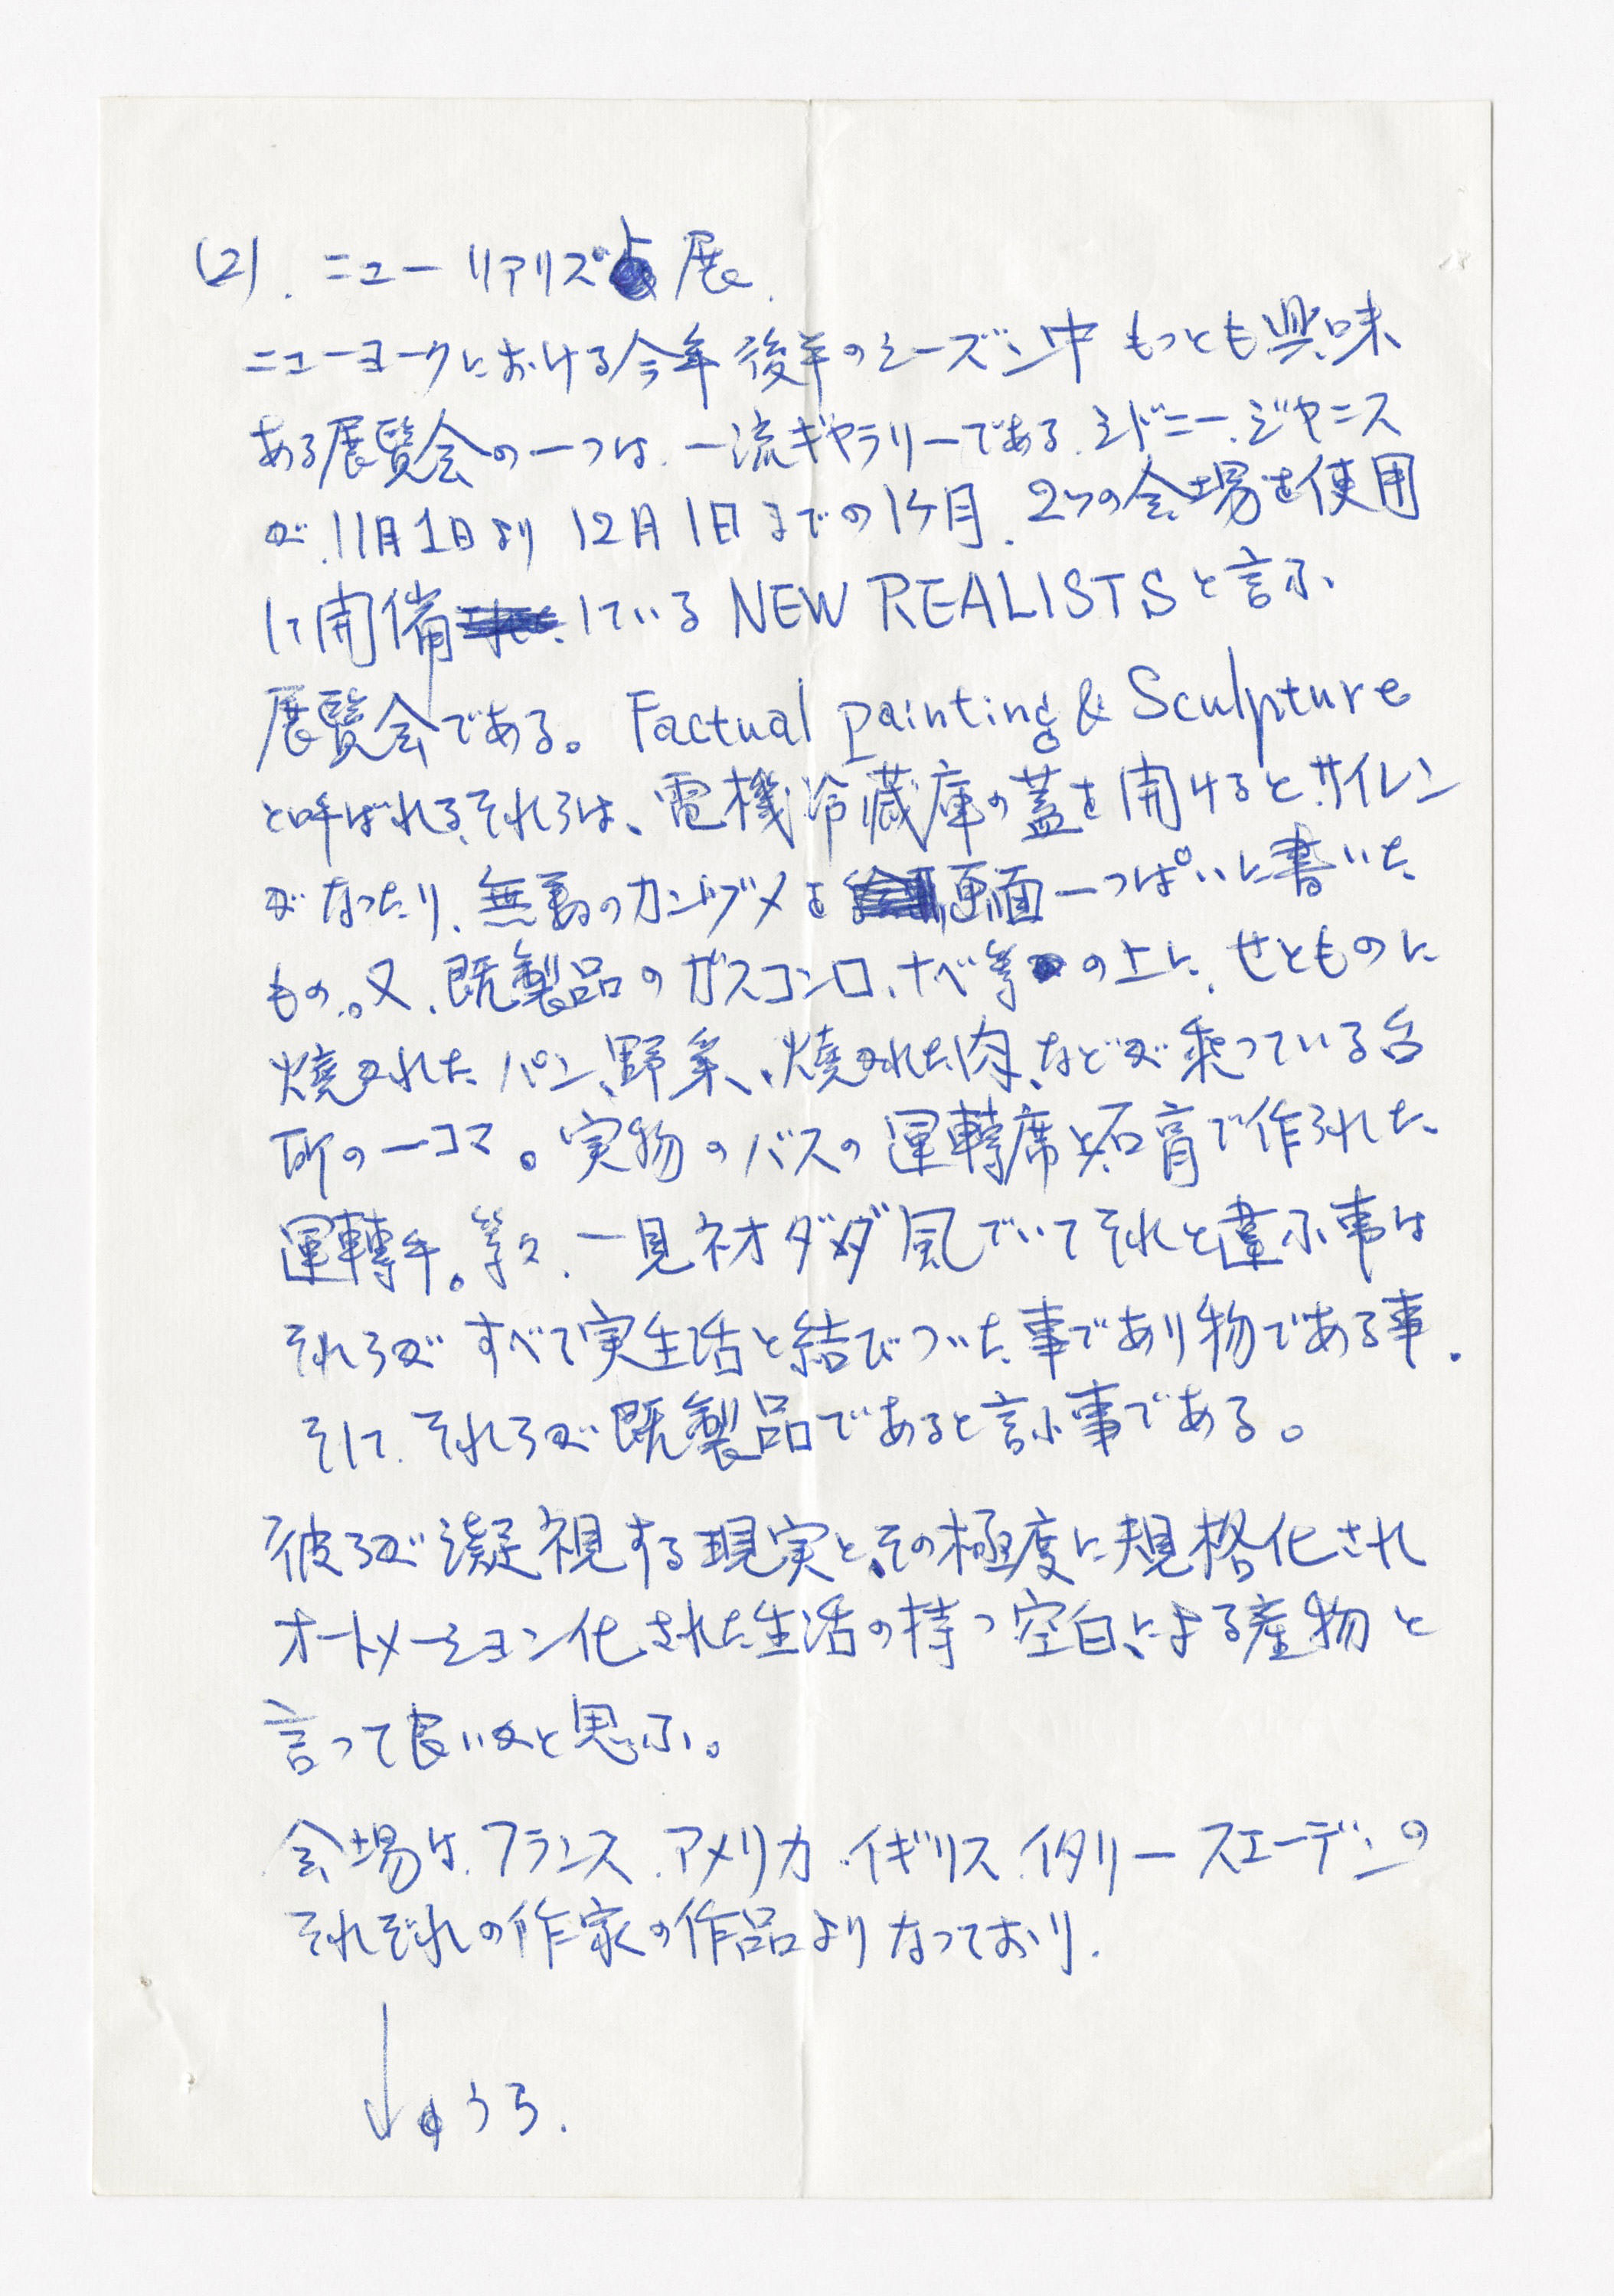 (2). ニューリアリズト展.
ニューヨークにおける今年後半のシーズン中 もっとも興味
ある展覧会の一つは.一流ギャラリーである.シドニー.ジャニス
が.11月1日より 12月1日までの1ケ月.2つの会場を使用
して開催している NEW REALISTSと言ふ
展覧会である。 Factual painting & Sculpture
と呼ばれる、それらは、電機冷蔵庫の蓋を開けると、サイレン
がなったり、無数のカンヅメを画面一っぱいに書いた
もの。又、既製品のガスコンロ、ナベ等の上に、せとものに
燒かれたパン、野菜、燒かれた肉、などが乘っている台
所の一コマ。実物のバスの運轉席と石膏で作られた
運轉手。等々、一見ネオダダ風でいてそれと違ふ事は
それらが すべて実生活と結びついた事であり物である事.
そして.それらが既製品であると言ふ事である。
彼らが凝視する現実と、その極度に規格化され
オートメーション化された生活の持つ空白による産物と
言って良いかと思ふ。
会場は.フランス.アメリカ.イギリス.イタリー スエーデンの
それぞれの作家の作品よりなっており.
↓うら.